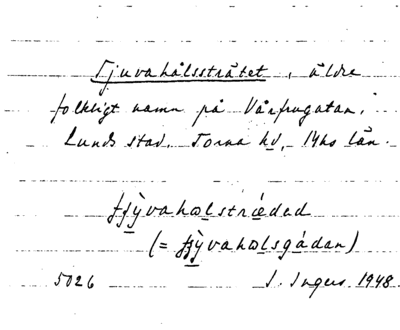 Tjuvahålssträtet, äldre
folkligt namn på Vårfrugatan.
Lunds stad. Torna hd, Mhs län.
fjỳvahωlstrèdad
(= fjỳvahωlsgádan)
5026 I. Ingers 1948.